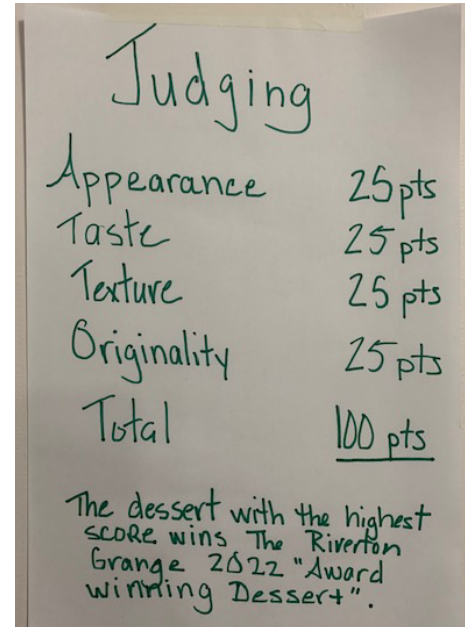 Judging
Appearance 25 pts
Taste 25 pts
Texture 25 pts
Originality 25 pts
Total 100 pts
The dessert with the highest
score wins The Riverton
Grange 2022 "Award
winning Dessert".